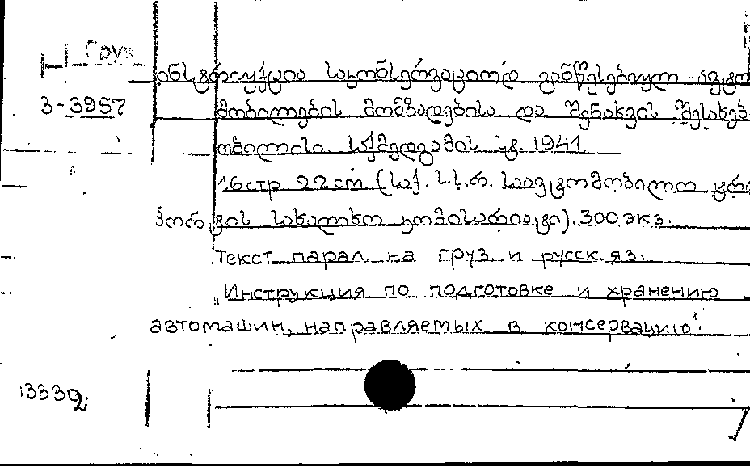 Груз
ინსტრუქცია საკონსერვაციოდ განწესებულ ავტო
3-3957 მობილების მომზადებისა და შენახვის შესახებ
თბილისი საქმედგამის ტფ. 1941
16стр 22см (საქ. ს.ს.რ. საავტომობილო ტრა
ნსპორტის სახალხო კომისარიატი). 300 экз.
Текст парал. на груз и русск яз.
„Инструкция по подготовке и хранению
автомашин, направляемых в консервацию“.
13332